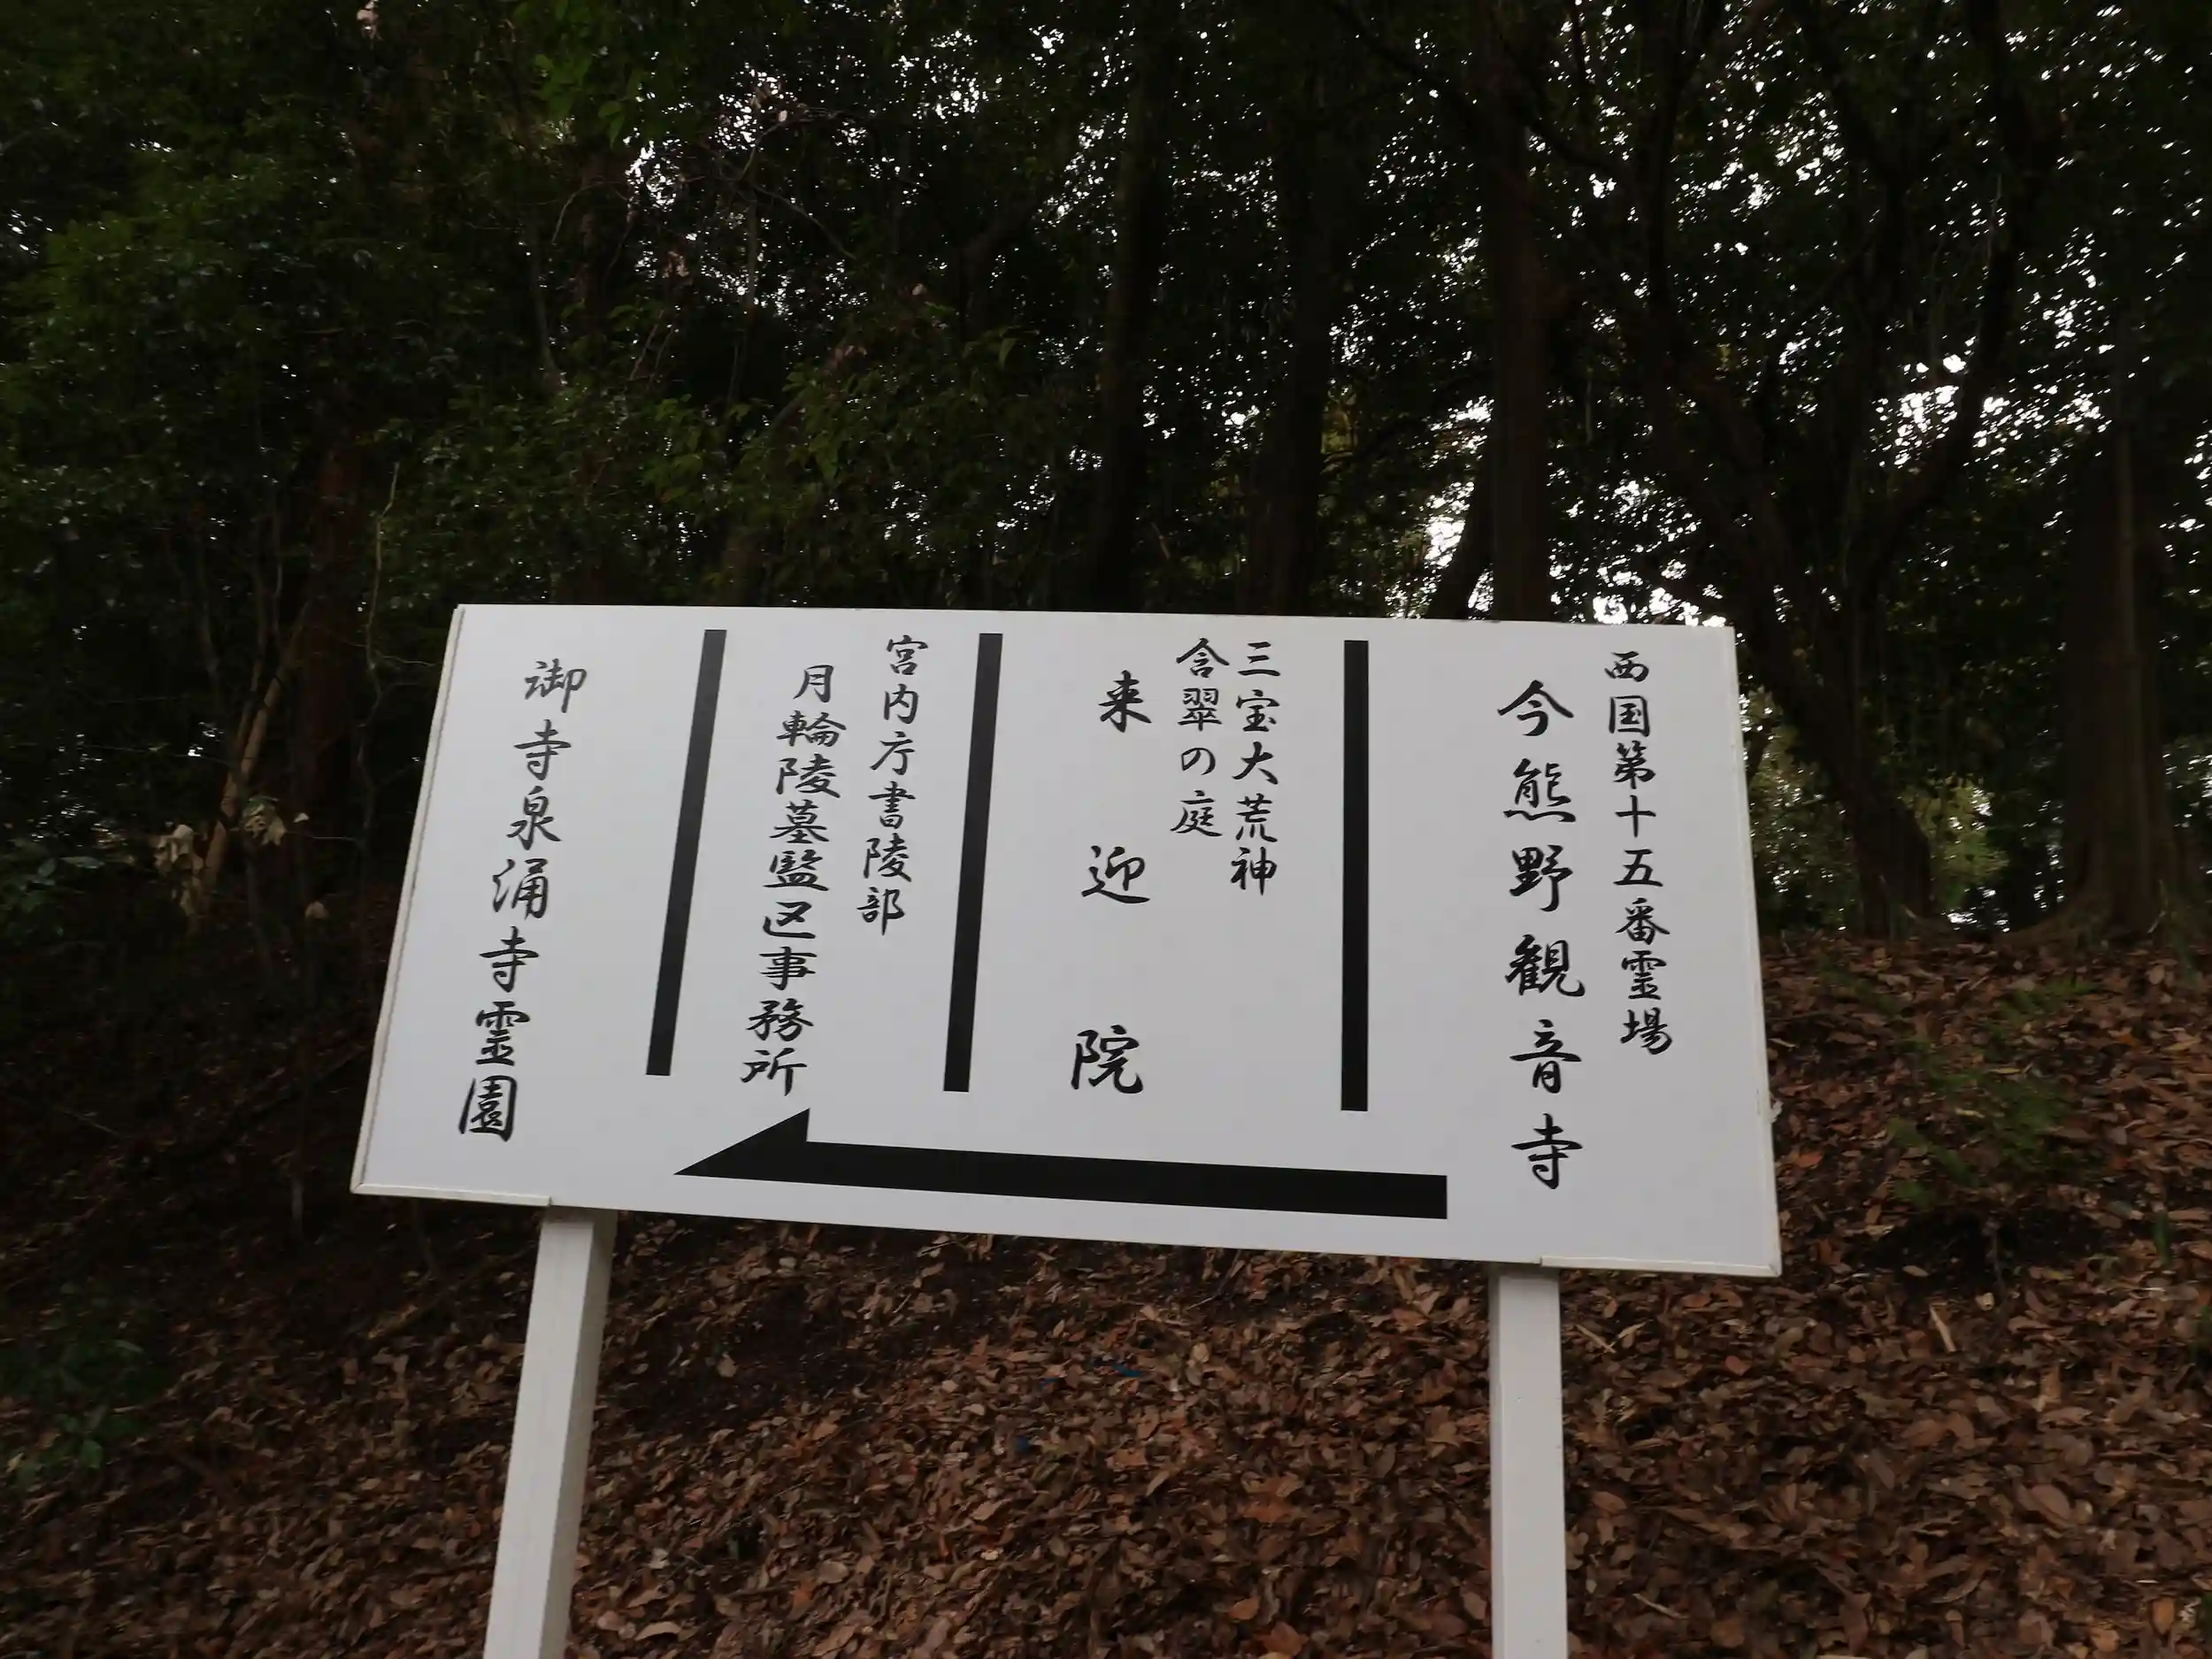 西国第十五番霊場
今熊野観音寺
三宝大荒神
含翠の庭
来迎院
宮内庁書陵部
月輪陵墓監区事務所
御寺泉涌寺霊園